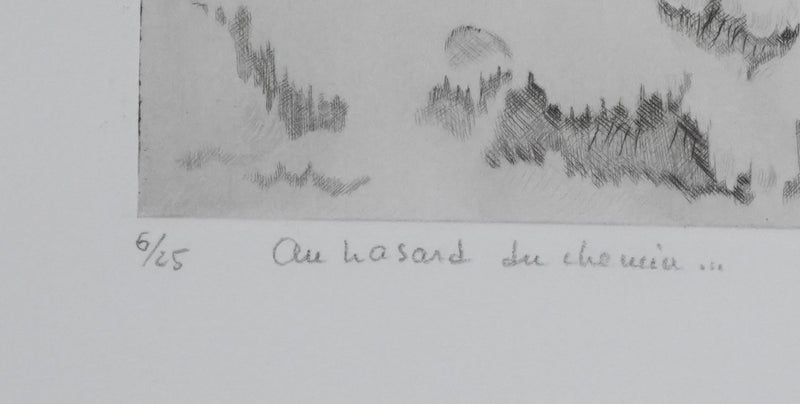 6/25 Au hasard du chemin...